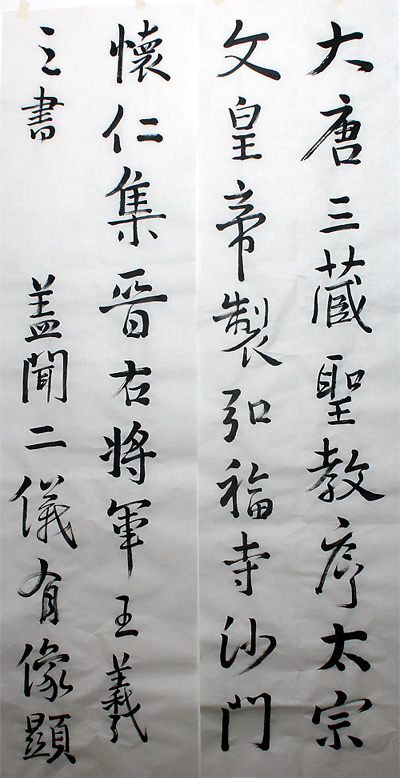 大唐三蔵聖教序太宗
文皇帝製弘福寺沙門
懐仁集晋右将軍王羲
之書 盖聞二儀有像顕